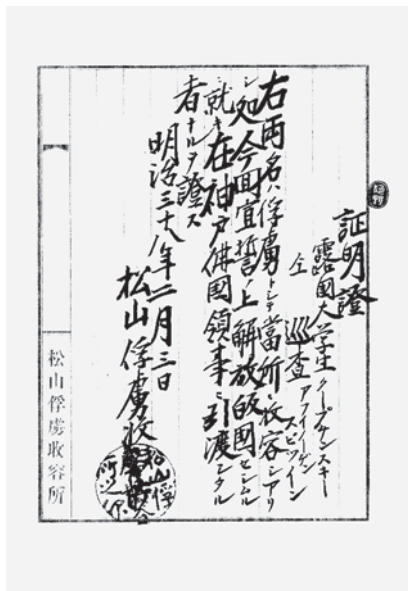 証明證
露國人学生クープチンスキー
仝 巡査アファイーゲン
スピツイン
右両名ハ俘虜トシテ當所ニ收容シアリ
シ処今回宣誓ノ上解放皈國セシムル
ニ就キ在神戸佛國領事ニ引渡シタル
者ナルヲ證ス
明治三十八年二月三日
松山俘虜收容所
松山俘虜收容所